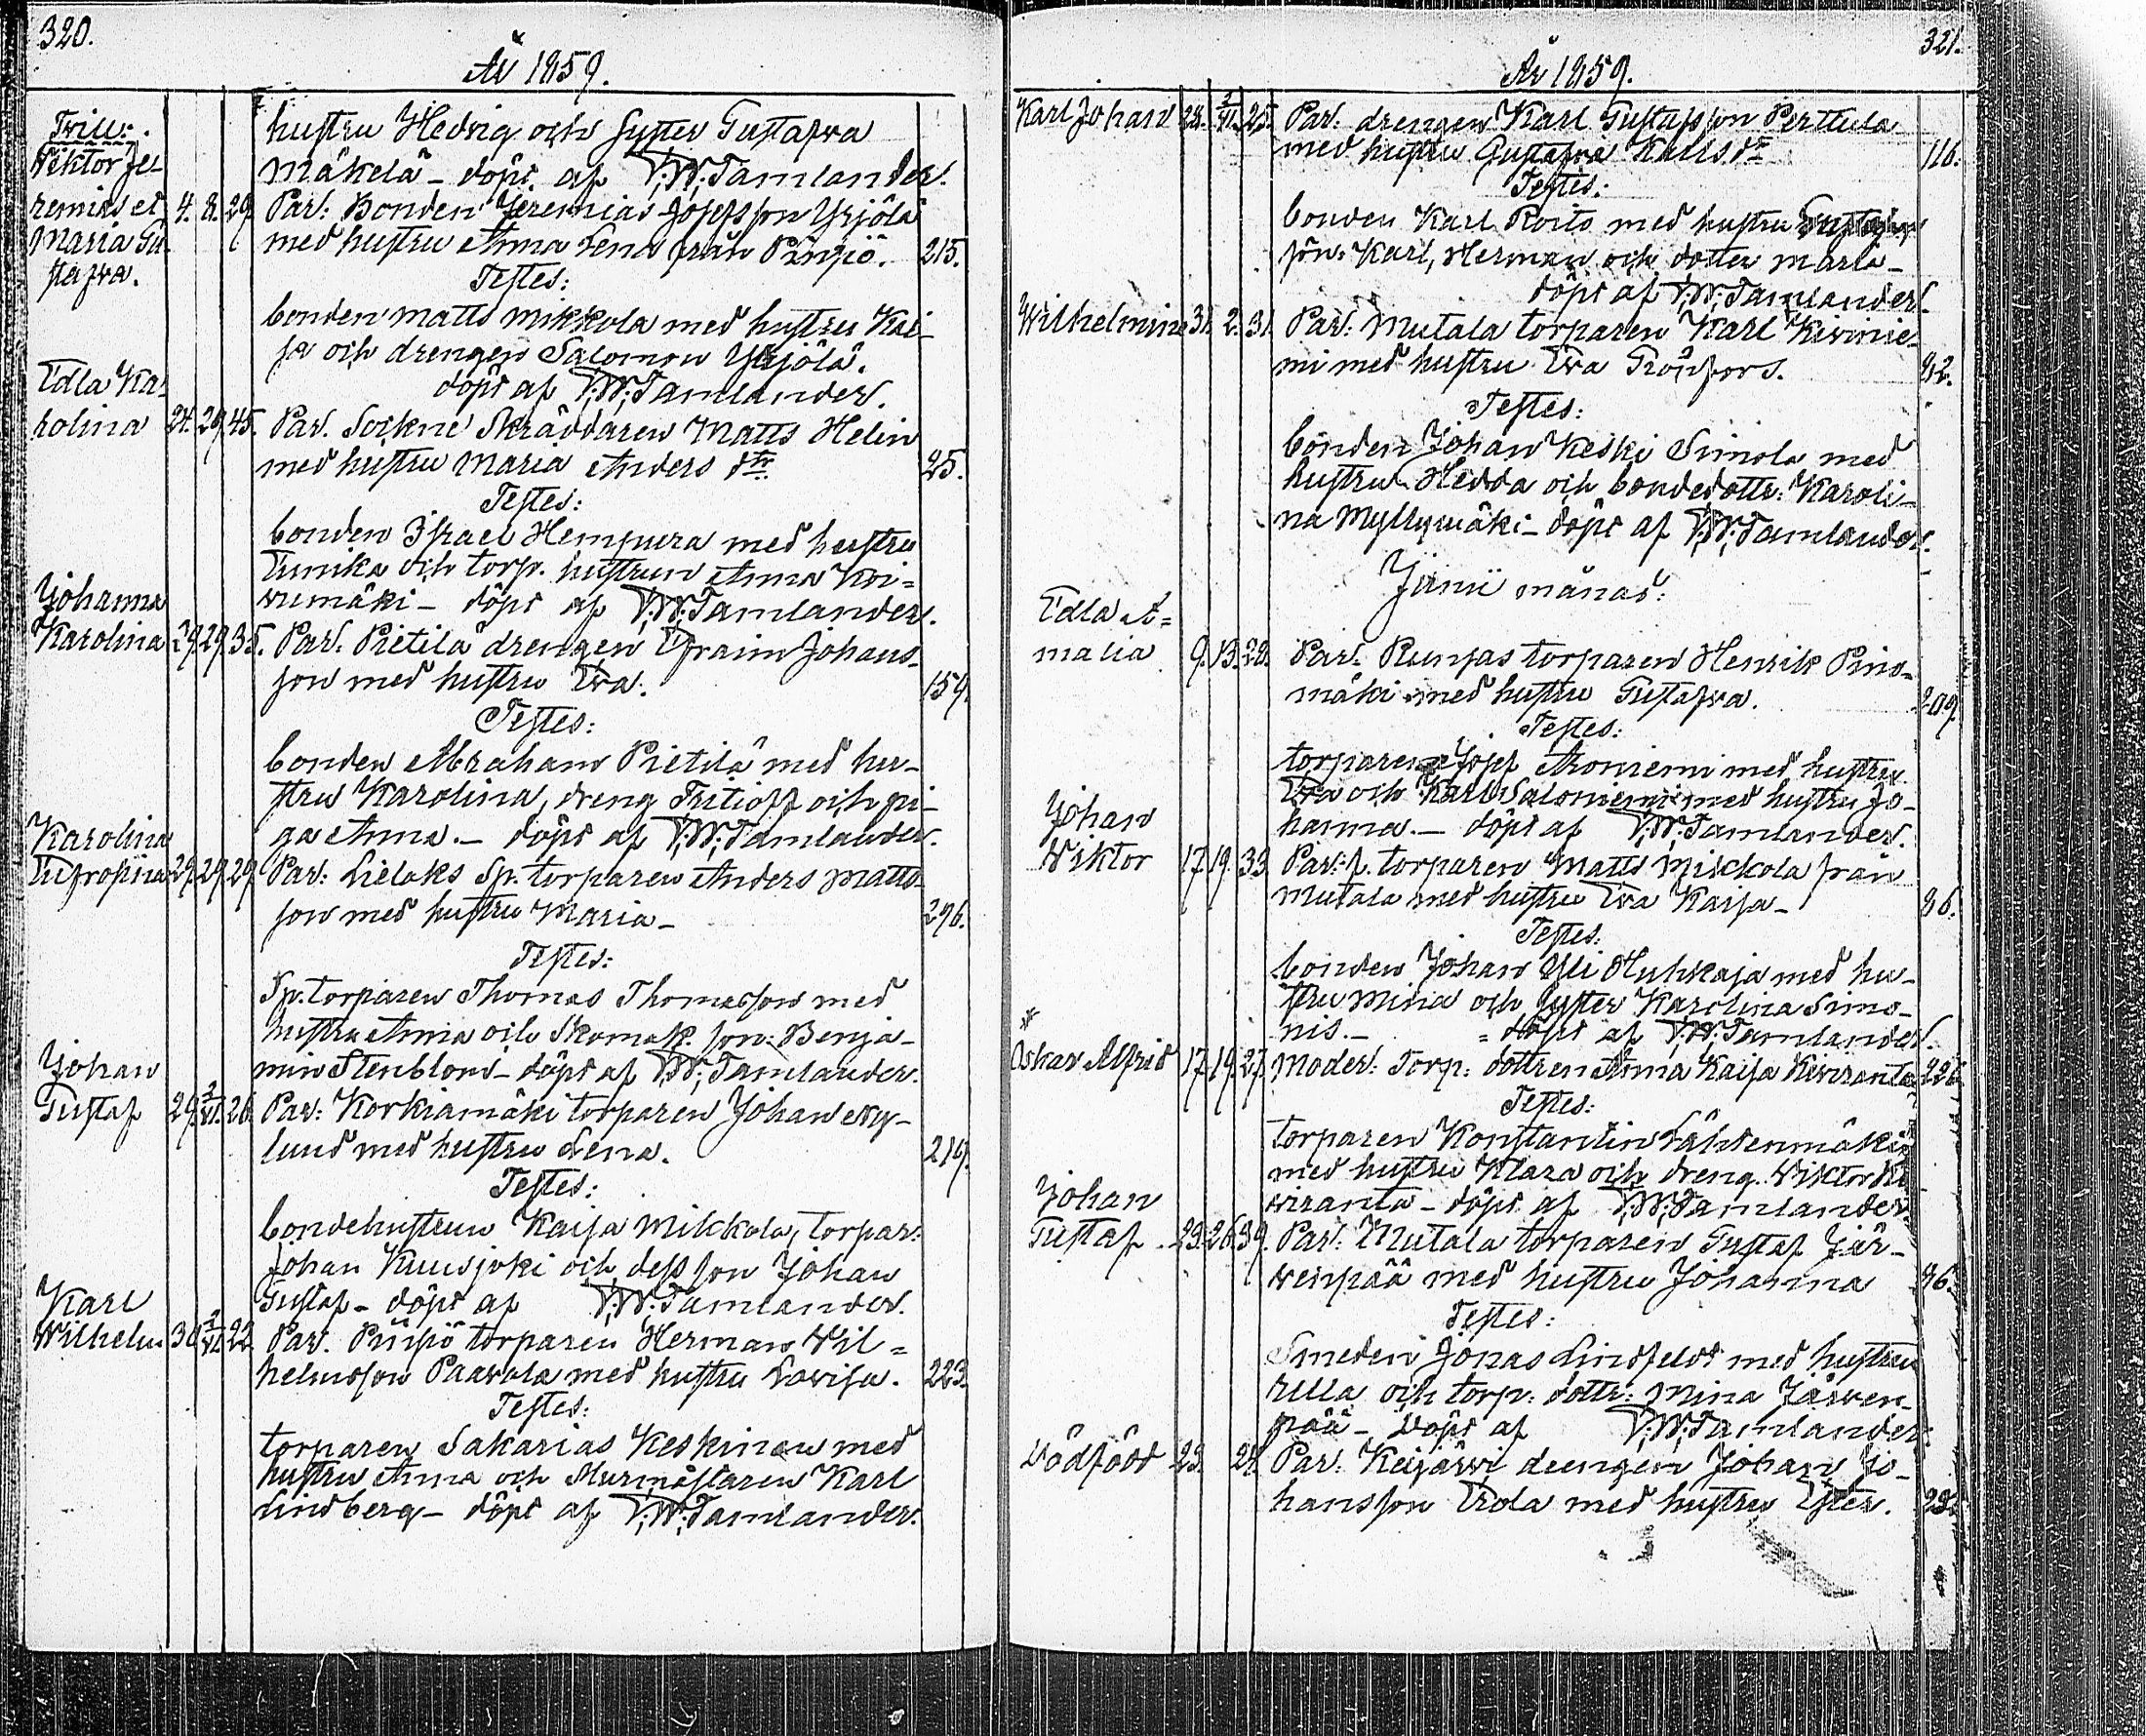 320.
År 1859.
hustru Hedvig och Syster Gustafva
Mäkelä - döpt af V. W. Tamlander.
Twill:
Wiktor Je-
remias et 4. 8. 29. Par: Bonden Jeremias Josefsson Yrjölä
Maria Gu- med hustru Anna Lena från Pinsiö. 215.
stafva.
Testes:
bonden Matts Mikkola med hustru Kai-
sa och drengen Salomon Yrjölä.
döpt af V. W. Tamlander.
Edla Ka-
rolina 24. 29. 45. Par. Sockne Skräddaren Matts Helin
med hustru Maria Anders dtr. 25.
Testes:
bonden Israel Hempura med hustru
Eunika och torp. hustrun Anna Koi-
wumäki - döpt af V. W. Tamlander.
Johanna
Karolina 29. 29. 35. Par. Pietilä drengen Efraim Johans-
son med hustru Eva. 159.
Testes:
bonden Abraham Pietilä med hu-
stru Karolina, dreng Fritioff och pi-
ga Anna. - döpt af V. W. Tamlander.
Karolina
Eufrosina 29. 29. 29. Par: Lielaks Sp. torparen Anders Matts-
son med hustru Maria - 296.
Testes:
Sp. torparen Thomas Thomasson med
hustru Anna och Skomak. son: Benja-
min Stenblom - döpt af V. W. Tamlander.
Johan
Gustaf 29. 2/VI. 26. Par: Korkiamäki torparen Johan Ny-
lund med hustru Lena. 219.
Testes:
bondehustrun Kaisa Mikkola, torpar:
Johan Kuusjoki och dess son Johan
Gustaf - döpt af V. W. Tamlander.
Karl
Wilhelm 30. 2/VI. 22. Par. Pinsiö torparen Herman Wil-
helmsson Paavola med hustru Lovisa. 223.
Testes:
torparen Sakarias Keskinen med
hustru Anna och Murmästaren Karl
Lindberg - döpt af V. W. Tamlander.
321.
År 1859.
Karl Johan 28. 2/VI. 25. Par: drengen Karl Gustafsson Perttula
med hustru Gustafva Karls dr 116.
Testes:
bonden Karl Roito med hustru Gustafva
sön: Karl, Herman och dotter Maria -
döpt af V. W. Tamlander.
Wilhelmina 31. 2. 31. Par: Mutala torparen Karl Kivinie-
mi med hustru Eva Grönfors. 82.
Testes:
bonden Johan Keski Simola med
hustru Hedda och bondedottr: Karoli-
na Myllymäki - döpt af V. W. Tamlander.
Junii månad:
Edla A-
malia 9. 13. 28. Par. Runsas torparen Henrik Pino-
mäki med hustru Gustafva. 209.
Testes:
torparen Josef Aroniemi med hustru
Eva och Karl Saloniemi med hustru Jo-
hanna. - döpt af V. W. Tamlander.
Johan
Wiktor 17. 19. 33. Par: f. torparen Matts Mikkola från
Mutala med hustru Eva Kaisa - 86.
Testes:
bonden Johan Yli Huhkaja med hu-
stru Mina och Syster Karolina Simo-
nis. - döpt af V. W. Tamlander.
*
Oskar Alfrid 17. 19. 27. Moder: Torp: dottren Anna Kaisa Kiviranta 226.
Testes:
torparen Konstantin Lähdenmäki
med hustru Klara och dreng. Wiktor Ki-
viranta - döpt af V. W. Tamlander.
Johan
Gustaf 23. 26. 39. Par: Mutala torparen Gustaf Jär-
wenpää med hustru Johanna 86.
Testes:
Smeden Jonas Lindfeldt med hustru
Ulla och torp: dottr: Mina Järwen-
pää - döpt af V. W. Tamlander.
Dödfödd 23. 24. Par: Keijärvi drengen Johan Jo-
hansson Erola med hustru Ester.